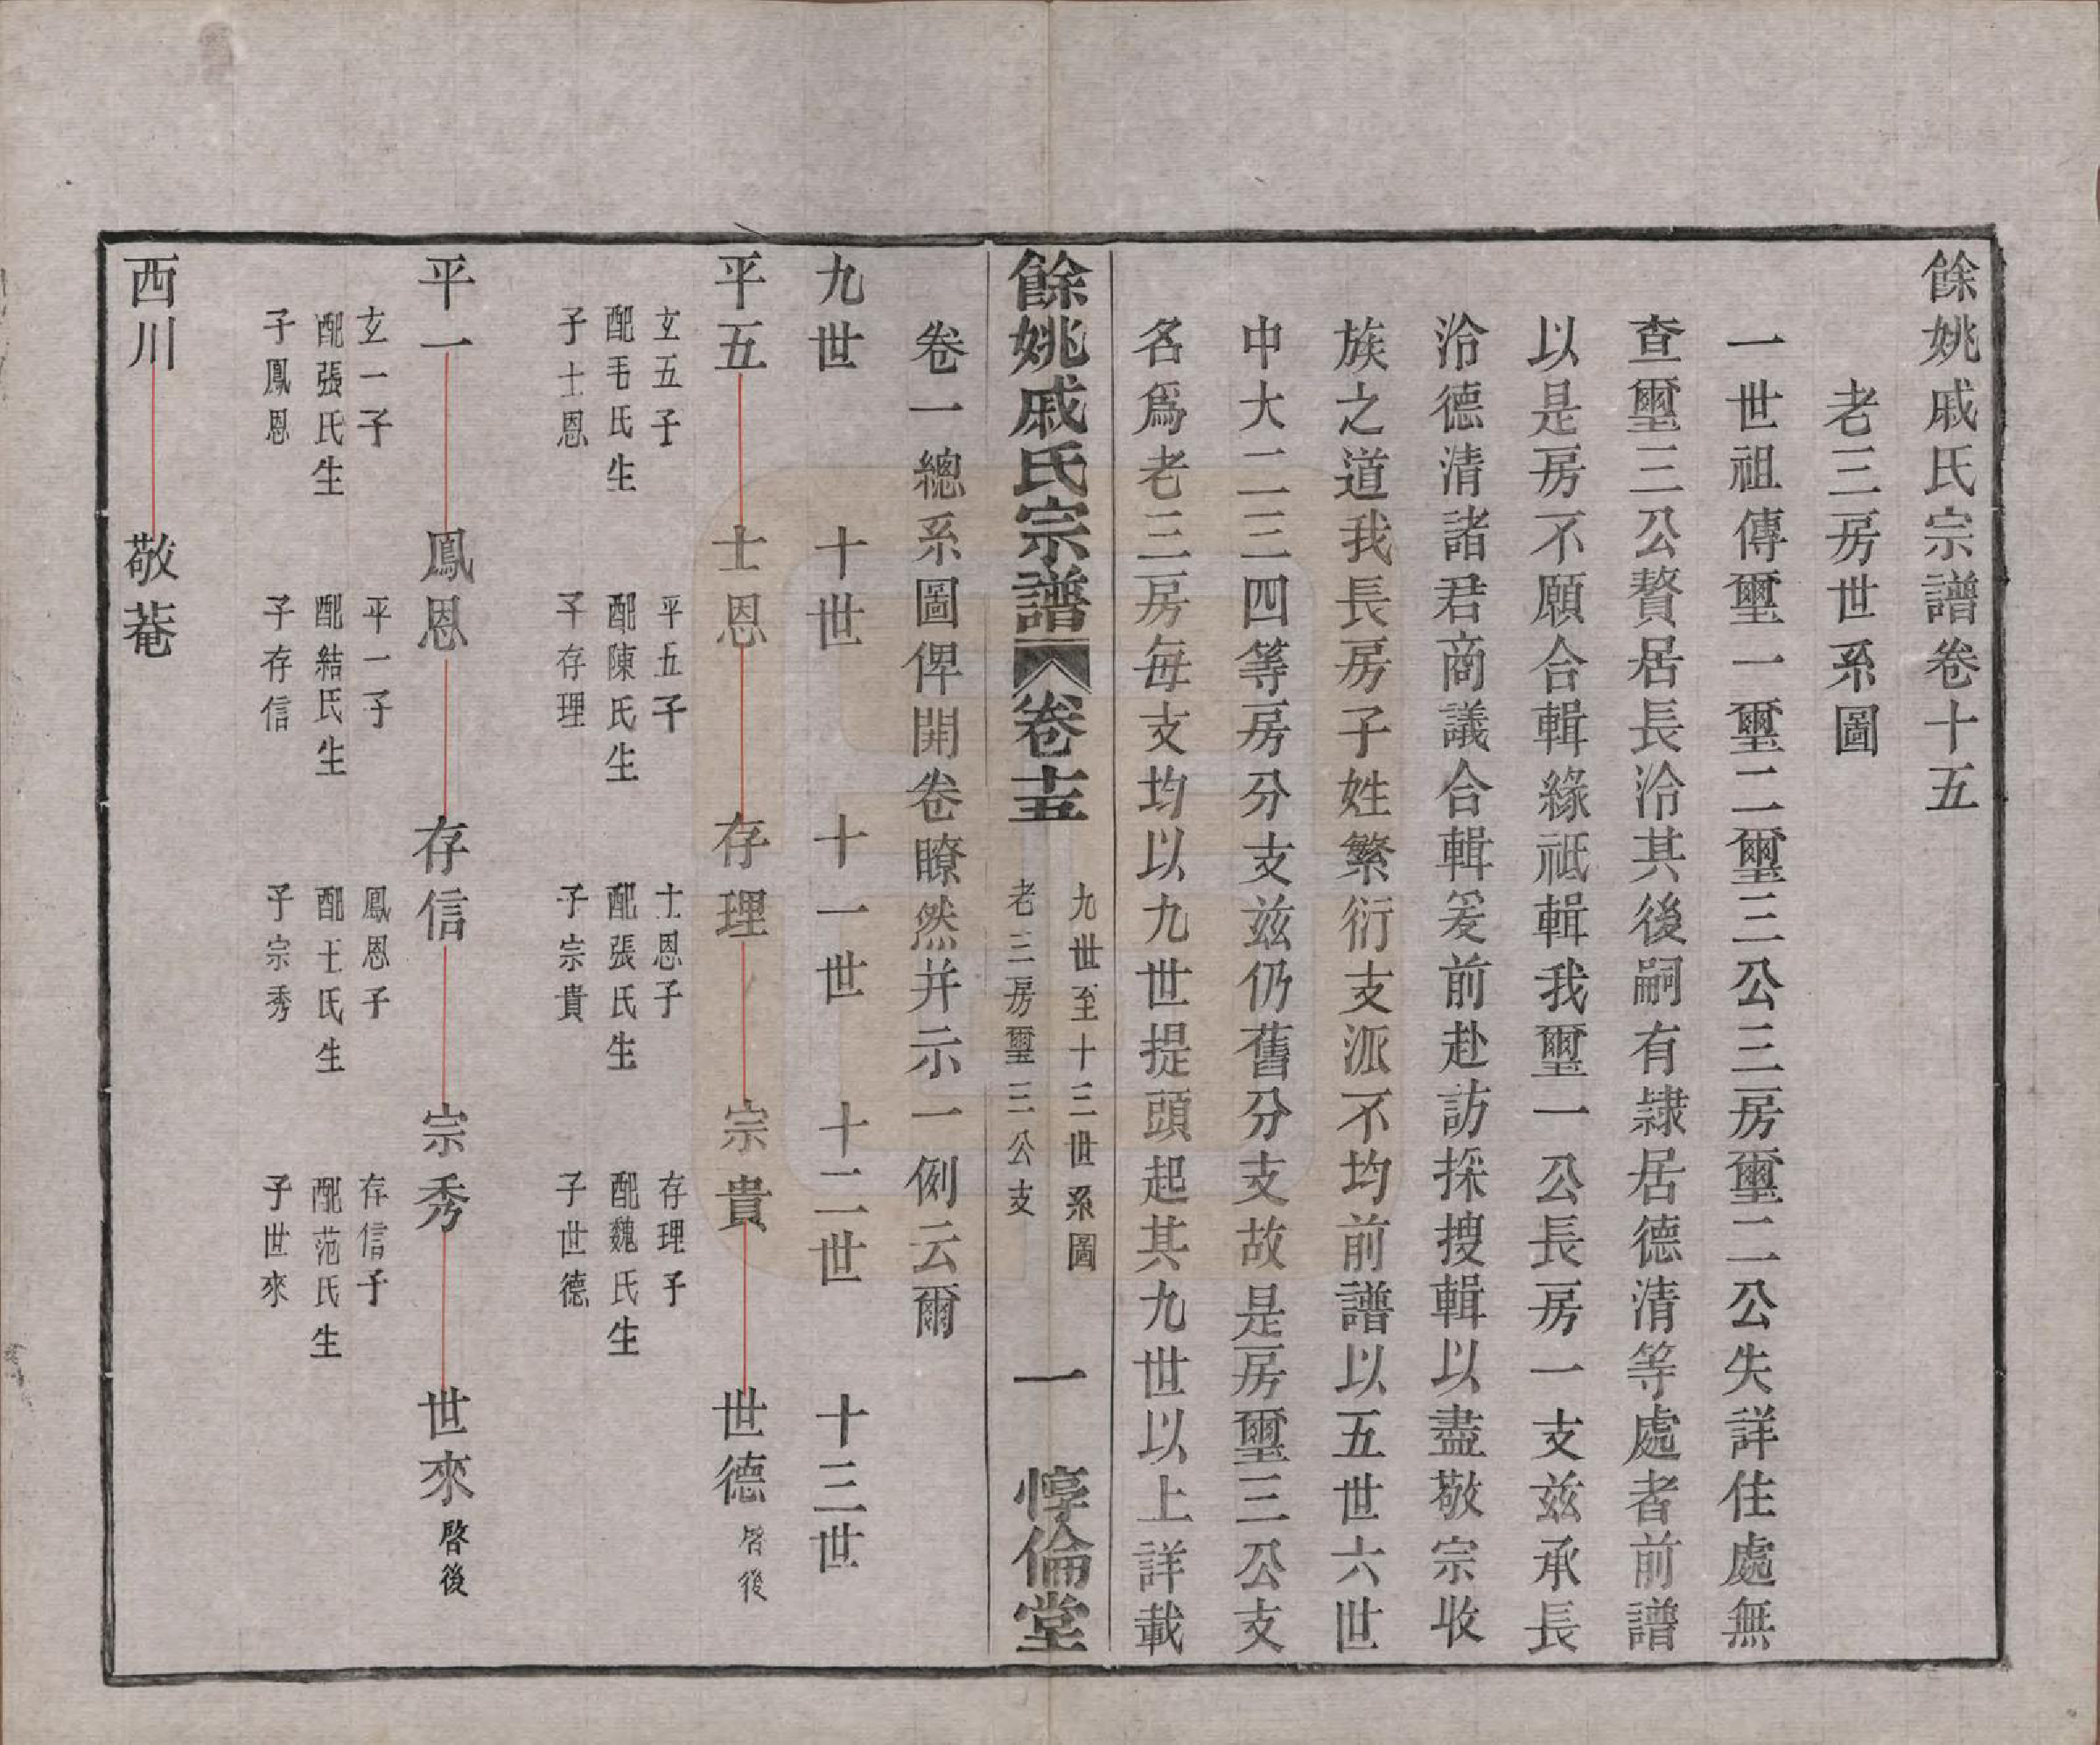 餘姚戚氏宗譜卷十五
老三房世系圖
一世祖傳璽一璽二璽三公三房璽二公失詳住處無
查璽三公贅居長泠其後嗣有隸居德清等處者前譜
以是房不願合輯緣祗輯我璽一公長房一支玆承長
泠德清諸君商議合輯爰前赴訪採搜輯以盡敬宗收
族之道我長房子姓繁衍支派不均前譜以五世六世
中大二三四等房分支玆仍舊分支故是房璽三公支
名爲老三房每支均以九世提頭起其九世以上詳載
餘姚戚氏宗譜 卷十五 九世至十三世系圖 老三房璽三公支 一 惇倫堂
卷一總系圖俾開卷瞭然并示一例云爾
九世 十世 十一世 十二世 十三世
平五 士恩 存理 宗貴 世德 啓後
玄五子 平五子 士恩子 存理子
配毛氏生 配陳氏生 配張氏生 配魏氏生
子士恩 子存理 子宗貴 子世德
平一 鳳恩 存信 宗秀 世來 啓後
玄一子 平一子 鳳恩子 存信子
配張氏生 配結氏生 配王氏生 配范氏生
子鳳恩 子存信 子宗秀 子世來
西川 敬菴